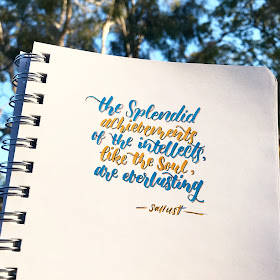 the Splendid
achievements
of the intellects,
like the Soul,
are everlasting
— Sallust —